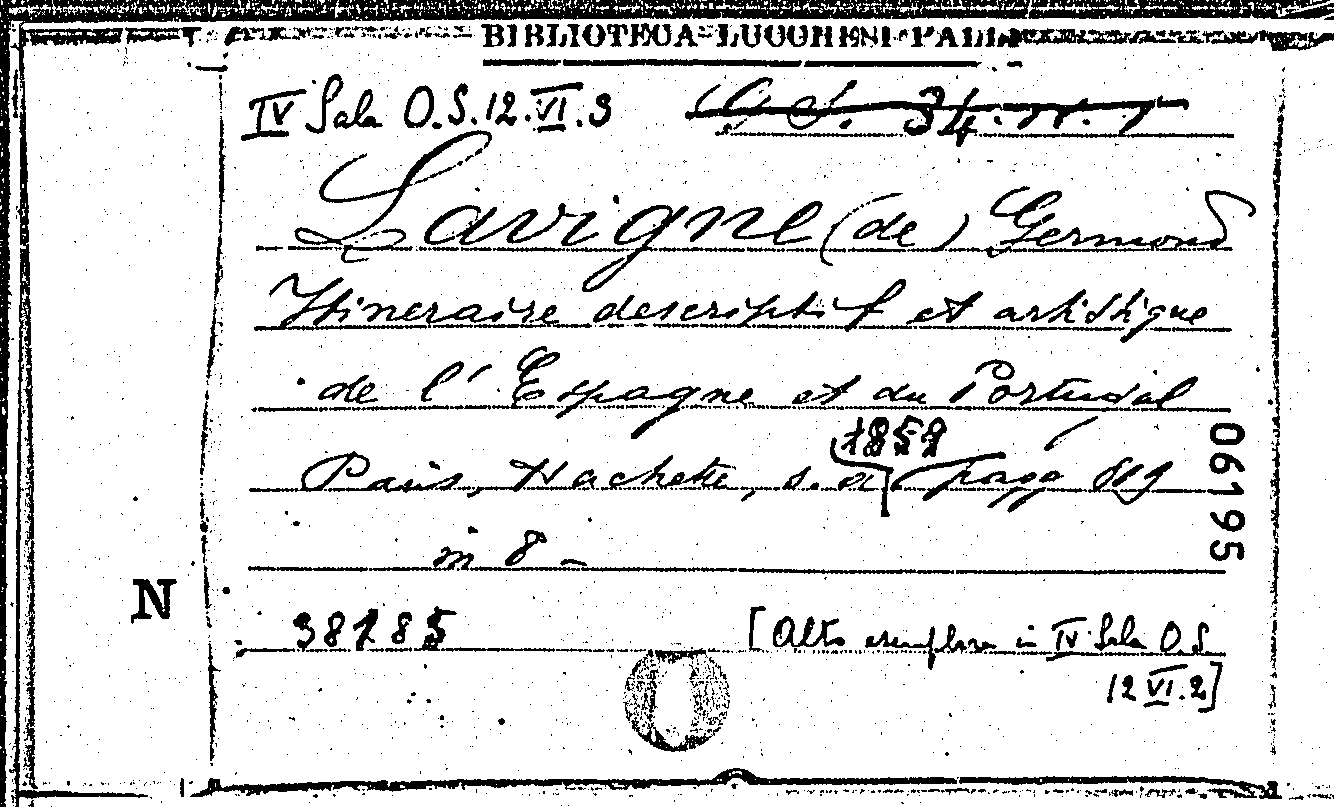 BIBLIOTECA LUCCHESI PALLI
IV Sala O.S.12.VI.3
Lavigne (de) Germond
Itineraire descriptif et artistique
de l'Espagne et du Portugal
1859
Paris, Hachette, s. a. pagg 819
in 8 -
06195
N
38285
[Altro esemplare in IV Sala O.S.
12 VI.2]